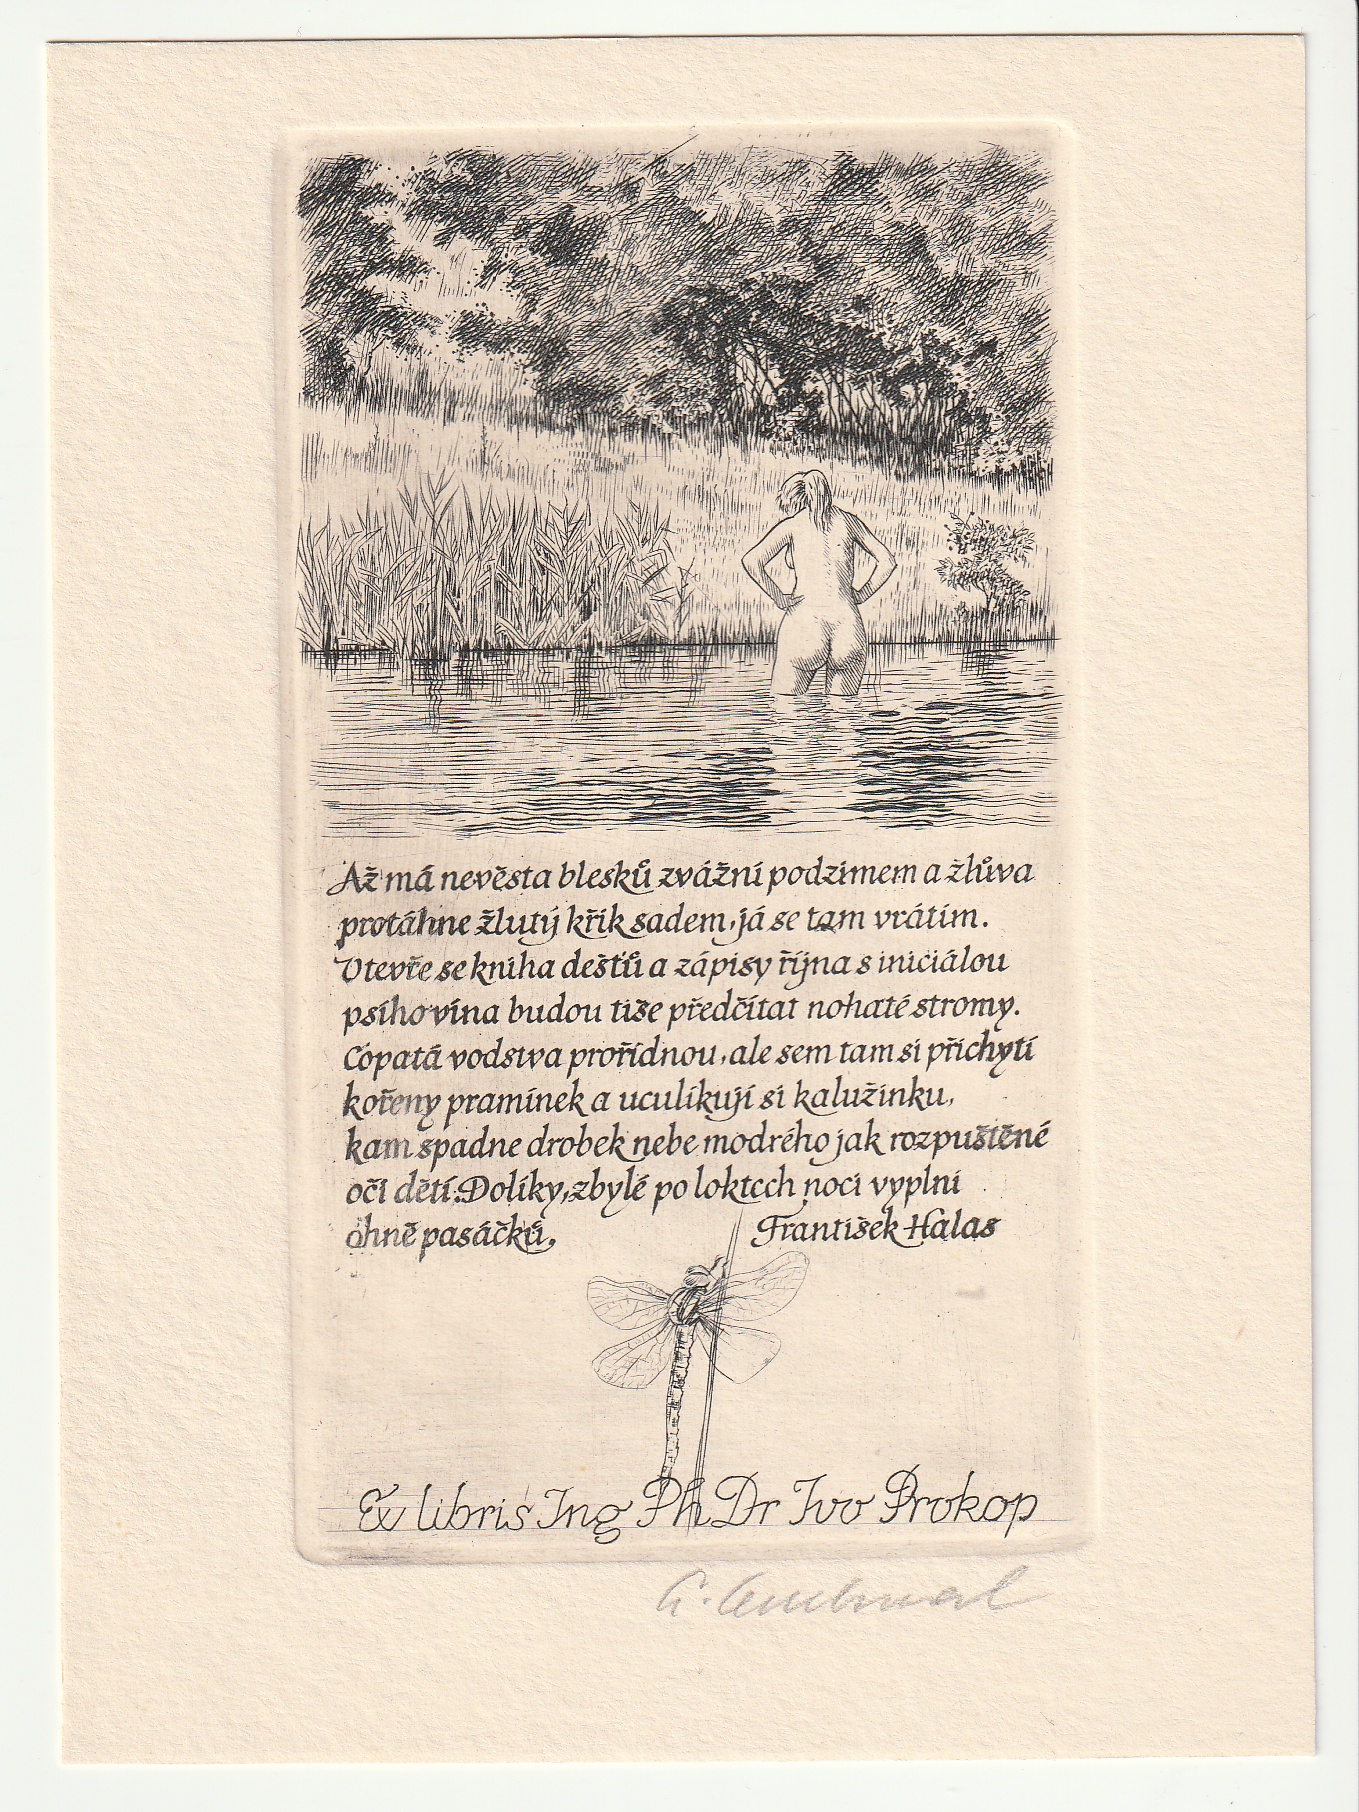 Až má nevěsta blesků zvážní podzimem a žlůva
protáhne žlutý křik sadem, já se tam vrátím.
Otevře se kniha dešťů a zápisy října s iniciálou
psího vína budou tiše předčítat nohaté stromy.
Copatá vodstva prořídnou, ale sem tam si přichytí
kořeny pramínek a uculíkují si kalužinku,
kam spadne drobek nebe modrého jak rozpuštěné
oči dětí. Dolíky, zbylé po loktech noci vyplní
ohně pasáčků. František Halas
Ex libris Ing PhDr Ivo Prokop